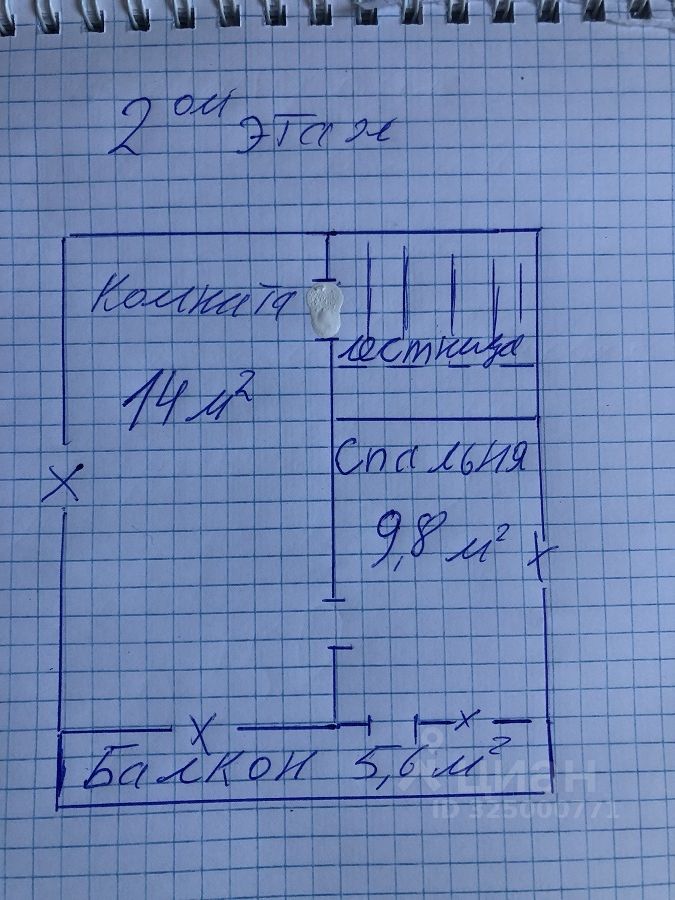 2ом этаж
Комната
лестница
14 м²
Спальня
9,8 м²
Балкон 5,6 м²
циан
ID 325000771